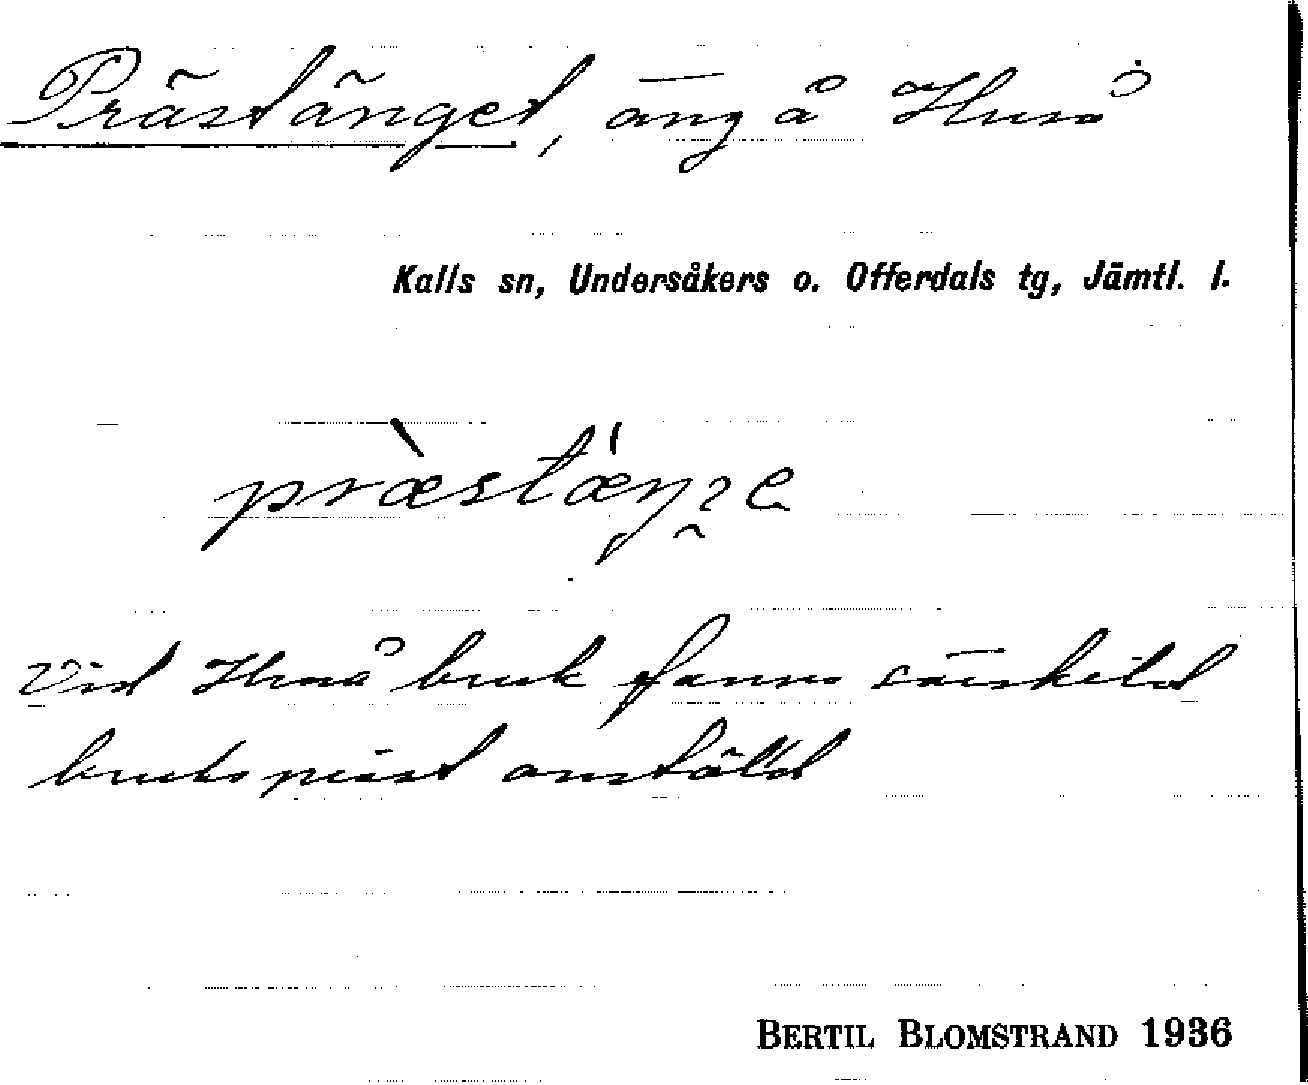 Prästänget, äng å Huså
Kalls sn, Undersåkers o. Offerdals tg, Jämtl. l.
præ̀stæ´ŋʒe
Vid Huså bruk fanns särskild
brukspräst anställd
BERTIL BLOMSTRAND 1936